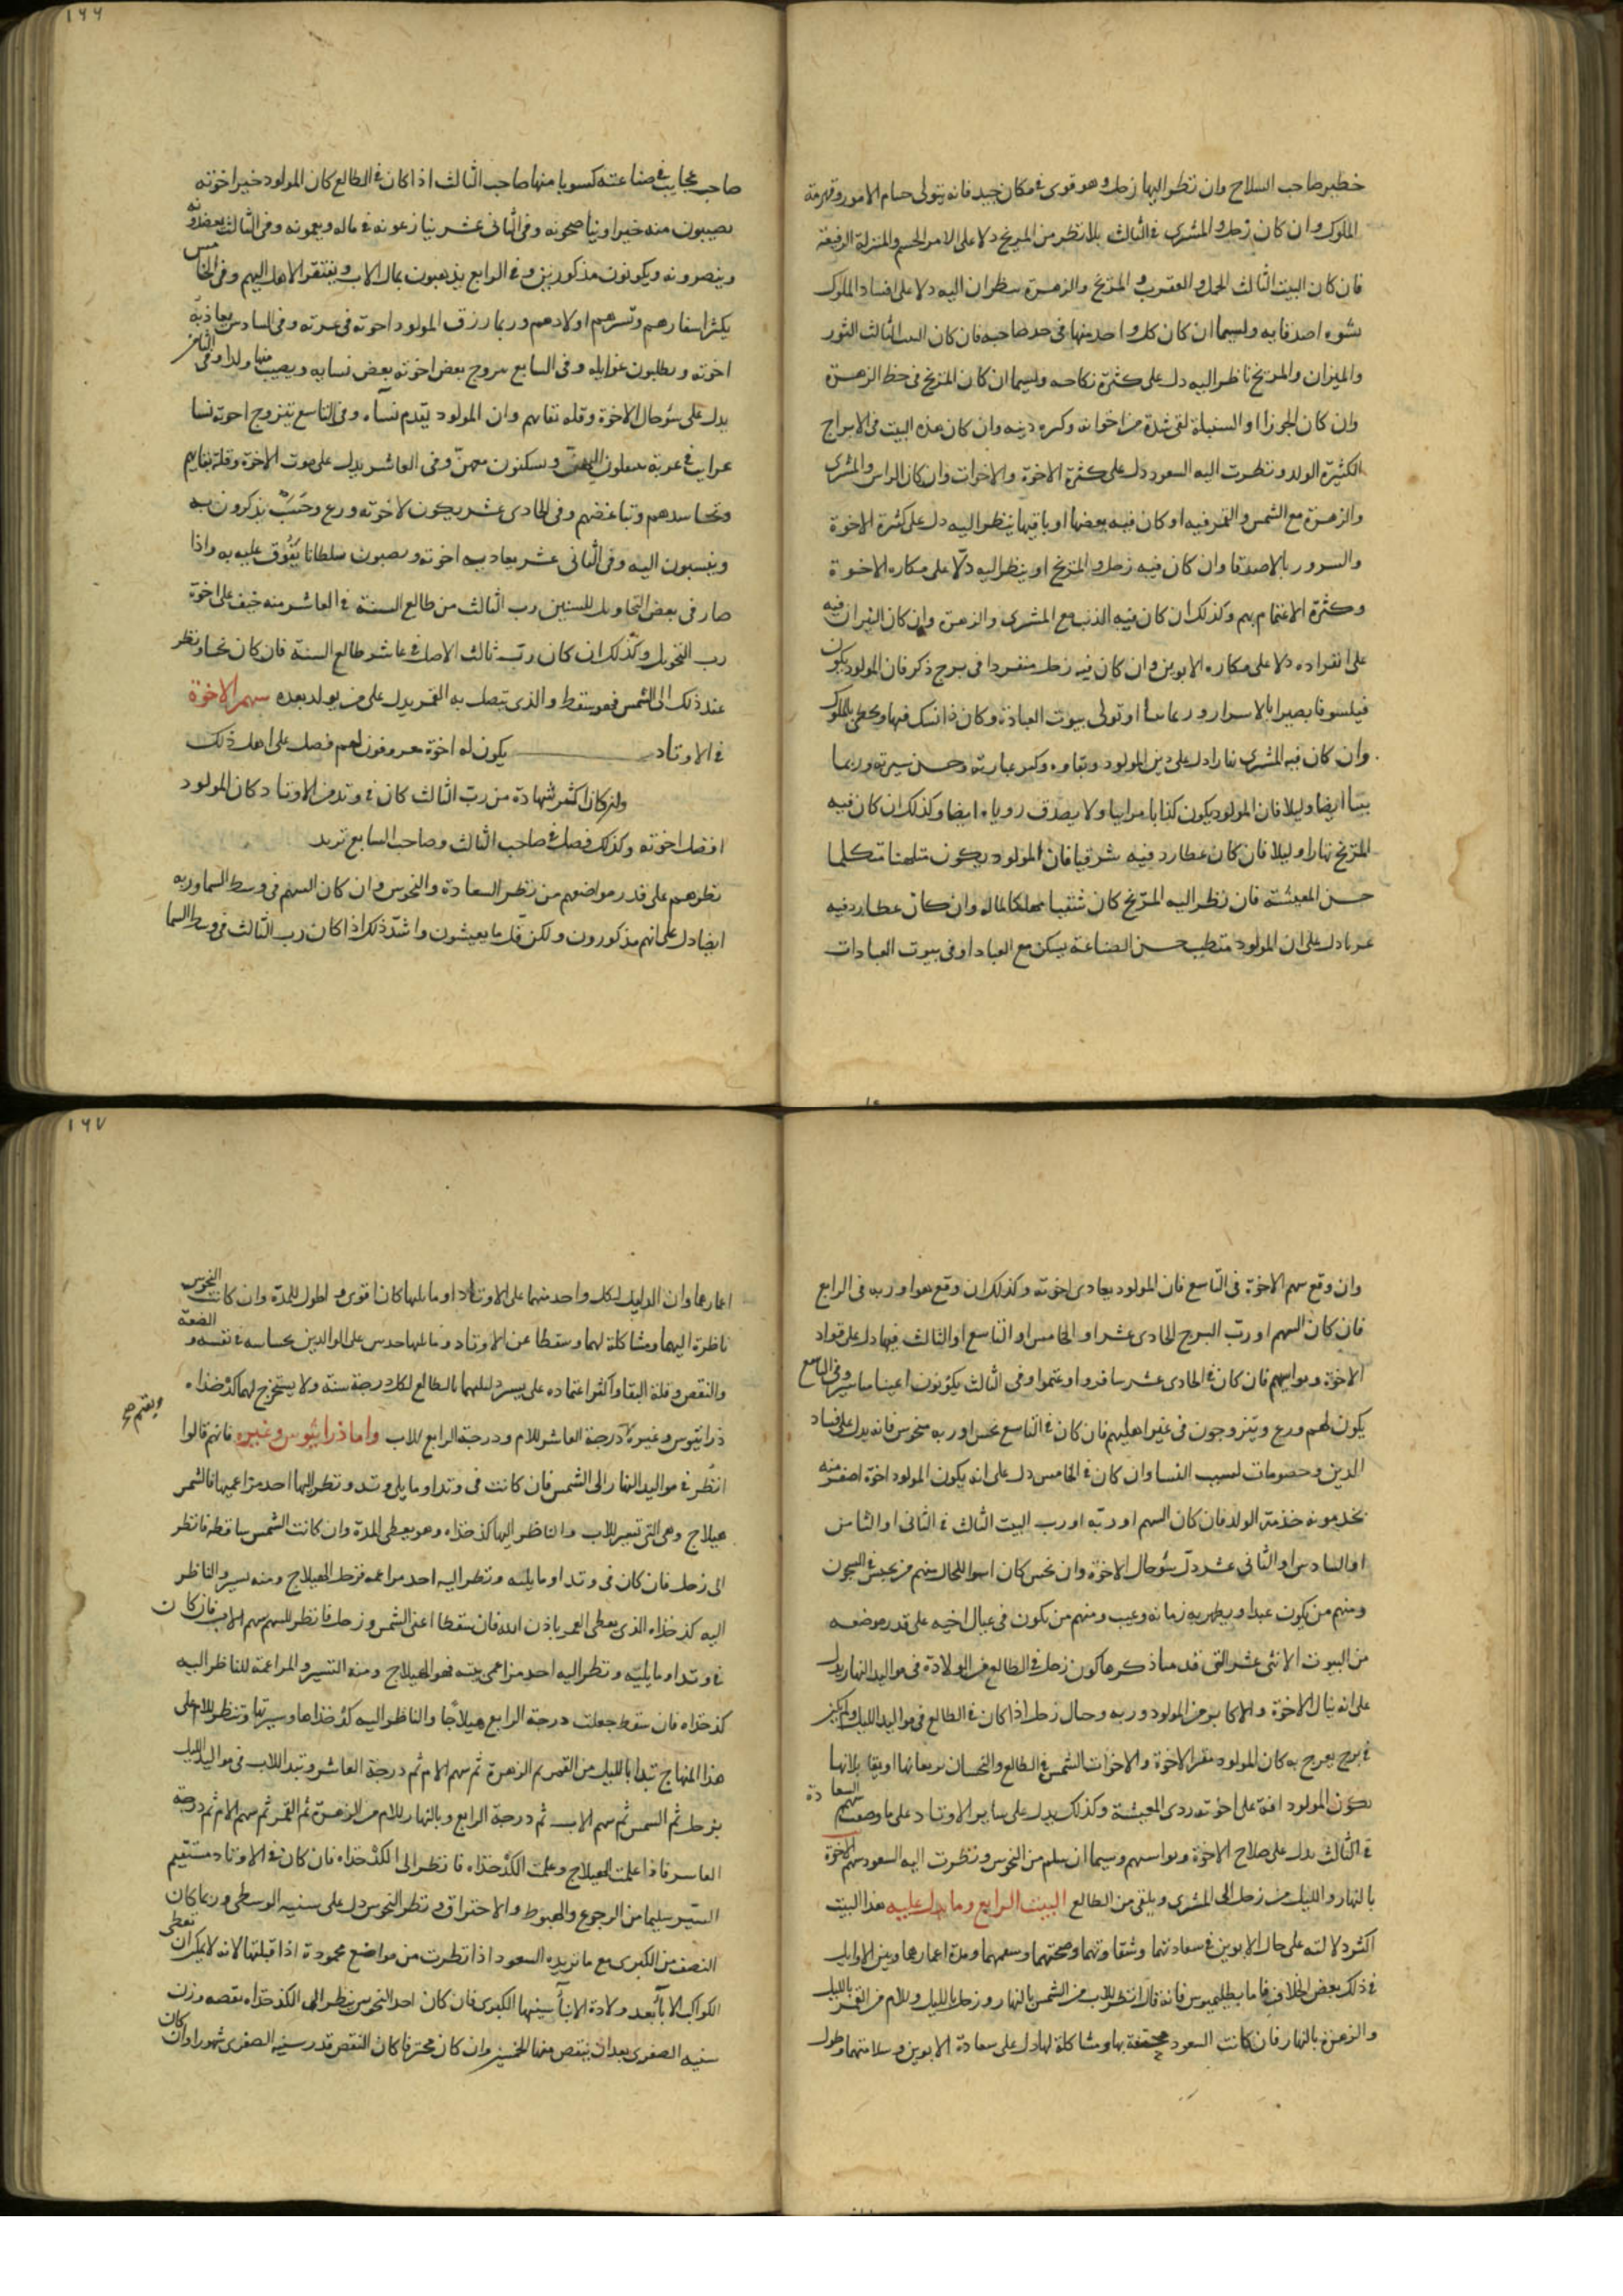 خطير صاحب السلاح وان نظر اليها زحل وهو قوى فى مكان جيد فانه يتولى حسام الامور وقهرمة
الملوك وان كان زحل والمشترى فى الثالث بلا نظر من المريخ دلا على الامر الجسيم والمنزلة الرفيعة
فان كان البيت الثالث الحمل والعقرب والمريخ والزهرة ينظران اليه دلا على افساد الملوك
بسوء اصدقايه ولسيما ان كان كل واحد منها فى حد صاحبه فان كان البيت الثالث الثور
والميزان والمريخ ناظر اليه دل على كثرة نكاحه ولسيما ان كان المريخ فى حظ الزهرة
وان كان الجوزا او السنبلة لقى شدة من اخوانه وكره دينه وان كان هذه البيت فى الابراج
الكثيرة الولد ونظرت اليه السعود دل على كثرة الاخوة والاخوات وان كان الراس والمشترى
والزهرة مع الشمس والقمر فيه او كان فيه بعضها او باقيها ينظر اليه دل على كثرة الاخوة
والسرور بالاصدقا وان كان فيه زحل والمريخ او ينظر اليه دلا على مكاره الاخوة
وكثرة الاغتمام بهم وكذلك ان كان فيه الذنب مع المشترى والزهرة وان كان النيران فيه
على انفراده دلا على مكاره الابوين وان كان فيه زحل منفردا فى برج ذكر فان المولود يكون
فيلسوفا بصيرا بالاسرار وربما او تولى بيوت العبادة وكان ذا نسك فيها ويحظى بالملوك
وان كان فيه المشترى نهارا دل على دين المولود وبقاوه وكبر عبارته وحسن سيرته وربما
ايضا وليلا فان المولود يكون كذابا مرايبا ولا يصدق روياه ايضا وكذلك ان كان فيه
المريخ نهارا وليلا فان كان عطارد فيه شرقيا فان المولود يكون متكلما
حسن المعيشة فان نظر اليه المريخ كان شقيا مهلكا لماله وان كان عطارد فيه
غربا دل على ان المولود متطبب حسن الصناعة يسكن مع العباد او فى بيوت العبادات
١٦٦
صاحب عجايب فى صناعته كسوبا منها صاحب الثالث اذا كان فى الطالع كان المولود خير اخوته
يصيبون منه خيرا ويناصحونه وفى الثانى عشر ينازعونه فى ماله ويعمونه وفى الثالث يعضدونه
وينصرونه ويكونون مذكورين وفى الرابع يذهبون بمال الاب ويفتقر الاهل اليهم وفى الخامس
يكثر اسفارهم وتسرهم اولادهم وربما رزق المولود اخوته فى غربة وفى السادس يعاديه
اخوته ويطلبون غوايله وفى السابع يتزوج بعض اخوته بعض نسايه ويصيب منها ولدا وفى الثامن
يدل على سوء حال الاخوة وقلة بقايهم وان المولود يتقدم نساه وفى التاسع يتزوج اخوته نسا
غرايب فى غربة ويسكنون معهن وفى العاشر يدل على موت الاخوة وقلة بقايهم
وتحاسدهم وتباغضهم وفى الحادى عشر يكون لاخوته ورع وحسب يذكرون به
وينسبون اليه وفى الثانى عشر يعاديه اخوته ويصيبون سلطانا يتفوق عليه به واذا
صار فى بعض التحاويل للسنين رب الثالث من طالع السنة فى العاشر منه خيف على اخوة
رب التحويل وكذلك ان كان رب ثالث الاصل فى عاشر طالع السنة فان كان نحسا ونظر
عند ذلك الى الشمس فهو يسقط والذى يتصل به القمر يدل على من يولد بعده سهم الاخوة
فى الاوتاد يكون له اخوة معروفون لهم فضل على اهل ذلك
وان كان اكثر شهادة من رب الثالث كان فى وتد من الاوتاد كان المولود
افضل اخوته وكذلك فضل فى صاحب الثالث وصاحب السابع تريد
نظرهم على قدر مواضعهم من نظر السعادة والنحوس وان كان السهم فى وسط السما وربه
ايضا دل على انهم مذكورون ولكن قل ما يعيشون واشد ذلك اذا كان رب الثالث فى وسط السما
وان وقع سهم الاخوة فى التاسع فان المولود يعادى اخوته وكذلك ان وقع هو او ربه فى الرابع
فان كان السهم او رب البرج الحادى عشر او الخامس او التاسع او الثالث فيها دل على تواد
الاخوة وتواسيهم فان كان فى الحادى عشر سافروا وغنموا وفى الثالث يكونون اعينا مياسير وفى التاسع
يكون لهم ورع ويتزوجون فى غير اهليهم فان كان فى التاسع نحس او ربه منحوس فانه يدل على فساد
الدين وخصومات لسبب النسا وان كان فى الخامس دل على انه يكون المولود اخوة اصغر منه
يخدمونه خدمة الولد فان كان السهم او ربه او رب البيت الثالث فى الثانى او الثامن
او السادس او الثانى عشر دل سوء حال الاخوة وان نحس كان اسوا للحال منهم من يحبس فى السجون
ومنهم من يكون عبدا ويظهر به زمانة وعيب ومنهم من يكون فى عيال اخيه على قدر موضعه
من البيوت الاثنى عشر التى قدمنا ذكرها كون زحل فى الطالع من الولادة فى مواليد النهار يدل
على انه ينال الاخوة والاكابر من المولود وربه وحال زحل اذا كان فى الطالع فى مواليد الليل ولم يكن
فى برج يفرح به كان المولود مفقر الاخوة والاخوات الشمس فى الطالع والنحسان بربعانها او يقابلانها
يكون المولود افة على اخوته ردى المعيشة وكذلك يدل على ساير الاوتاد على ما وصفت سهم السعادة
فى الثالث يدل على صلاح الاخوة وتواسيهم وسيما ان سلم من النحوس ونظرت اليه السعود سهم الاخوة
بالنهار والليل من زحل الى المشترى ويلقى من الطالع البيت الرابع وما يدل عليه هذا البيت
اكثر دلالته على حال الابوين فى سعادتهما وشقاوتهما وصحتهما وسقمهما ومدة اعمارهما وبين الاوايل
فى ذلك بعض الخلاف فاما بطليموس فانه قال انظر للاب من الشمس بالنهار وزحل بالليل وللام من القمر بالليل
والزهرة بالنهار فان كانت السعود محتفة بها ومشاكلة لها دل على سعادة الابوين وسلامتهما وطول
١٦٧
اعمارهما وان الدليل لكل واحد منهما على الاوتاد او ما يليها كان اقوى واطول للمدة وان كانت النحوس
ناظرة اليهما ومشاكلة لهما وسقطا عن الاوتاد وما يليها حدس على الوالدين بحسابه فى نفسه والضعة
والنقص وقلة البقا واكثر اعتماده على تسيير دليليهما بالطالع لكل درجة سنة ولا يستخرج لهما كدخذاه
ذراثيوس وغيره درجة العاشر للام ودرجة الرابع للاب واما ذراثيوس وغيره فانهم قالوا
انظر فى مواليد النهار الى الشمس فان كانت فى وتد او ما يلى وتد ونظر اليها احد مزاعميها فالشمس
هيلاج وهى التى تسير للاب والناظر اليها كدخذاه وهو يعطى المدة وان كانت الشمس ساقطة فانظر
الى زحل فان كان فى وتد او ما يليه ونظر اليه احد مزاعميه فزحل الهيلاج ومنه تسير والناظر
اليه كدخذاه الذى يعطى العمر باذن الله فان سقطا اعنى الشمس وزحل فانظر للسهم سهم الاب فان كان
فى وتد او ما يليه ونظر اليه احد مزاعمى بيته فهو الهيلاج ومنه التسيير والمزاعمة للناظر اليه
كدخذاه فان سقط جعلت درجة الرابع هيلاجا والناظر اليه كدخذاها وسيرتها وتنظر للام على
هذا المنهاج تبدا بالليل من القمر ثم الزهرة ثم سهم الام ثم درجة العاشر وتبدا للاب فى مواليد الليل
بزحل ثم الشمس ثم سهم الاب ثم درجة الرابع وبالنهار للام من الزهرة ثم القمر ثم سهم الام ثم درجة
العاشر فاذا علمت الهيلاج وعلمت الكدخذاه فانظر الى الكدخذاه فان كان فى الاوتاد مستقيم
السير سليما من الرجوع والهبوط والاحتراق ونظر النحوس دل على سنيه الوسطى وربما كان
النصف من الكبرى مع ما تزيده السعود اذا نظرت من مواضع محمودة اذا قبلتها لانه لا يمكن ان تعطى
الكواكب الابا بعد ولادة الابنا سنيها الكبرى فان كان احد النحوس ينظر الى الكدخذاه نقصه وزن
سنيه الصغرى بعد ان ينقص منها الخمس وان كان محترقا كان النقص قدر سنيه الصغرى شهورا وان كان